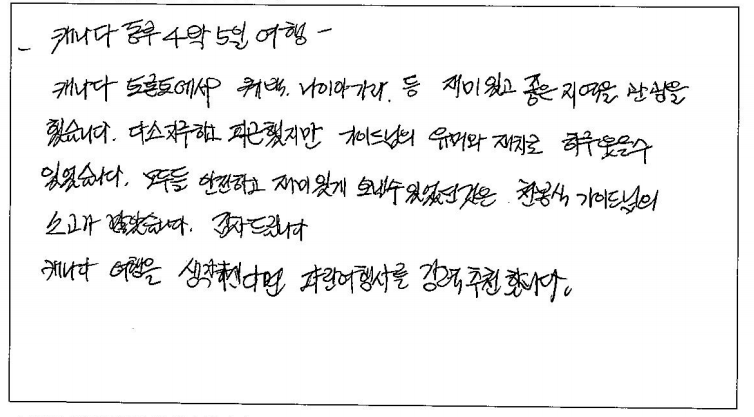 - 캐나다 동부 4박 5일 여행 -
캐나다 토론토에서 퀘벡, 나이아가라, 등 재미있고 좋은 지역을 관광을
했습니다. 다소 지루하고 피곤했지만 가이드님의 유머와 재치로 하루 웃을수
있었습니다. 모두들 안전하고 재미있게 보낼수 있었던것은 천봉식 가이드님의
수고가 많았습니다. 감사드립니다
캐나다 여행을 생각하신다면 파란여행사를 강력추천합니다.